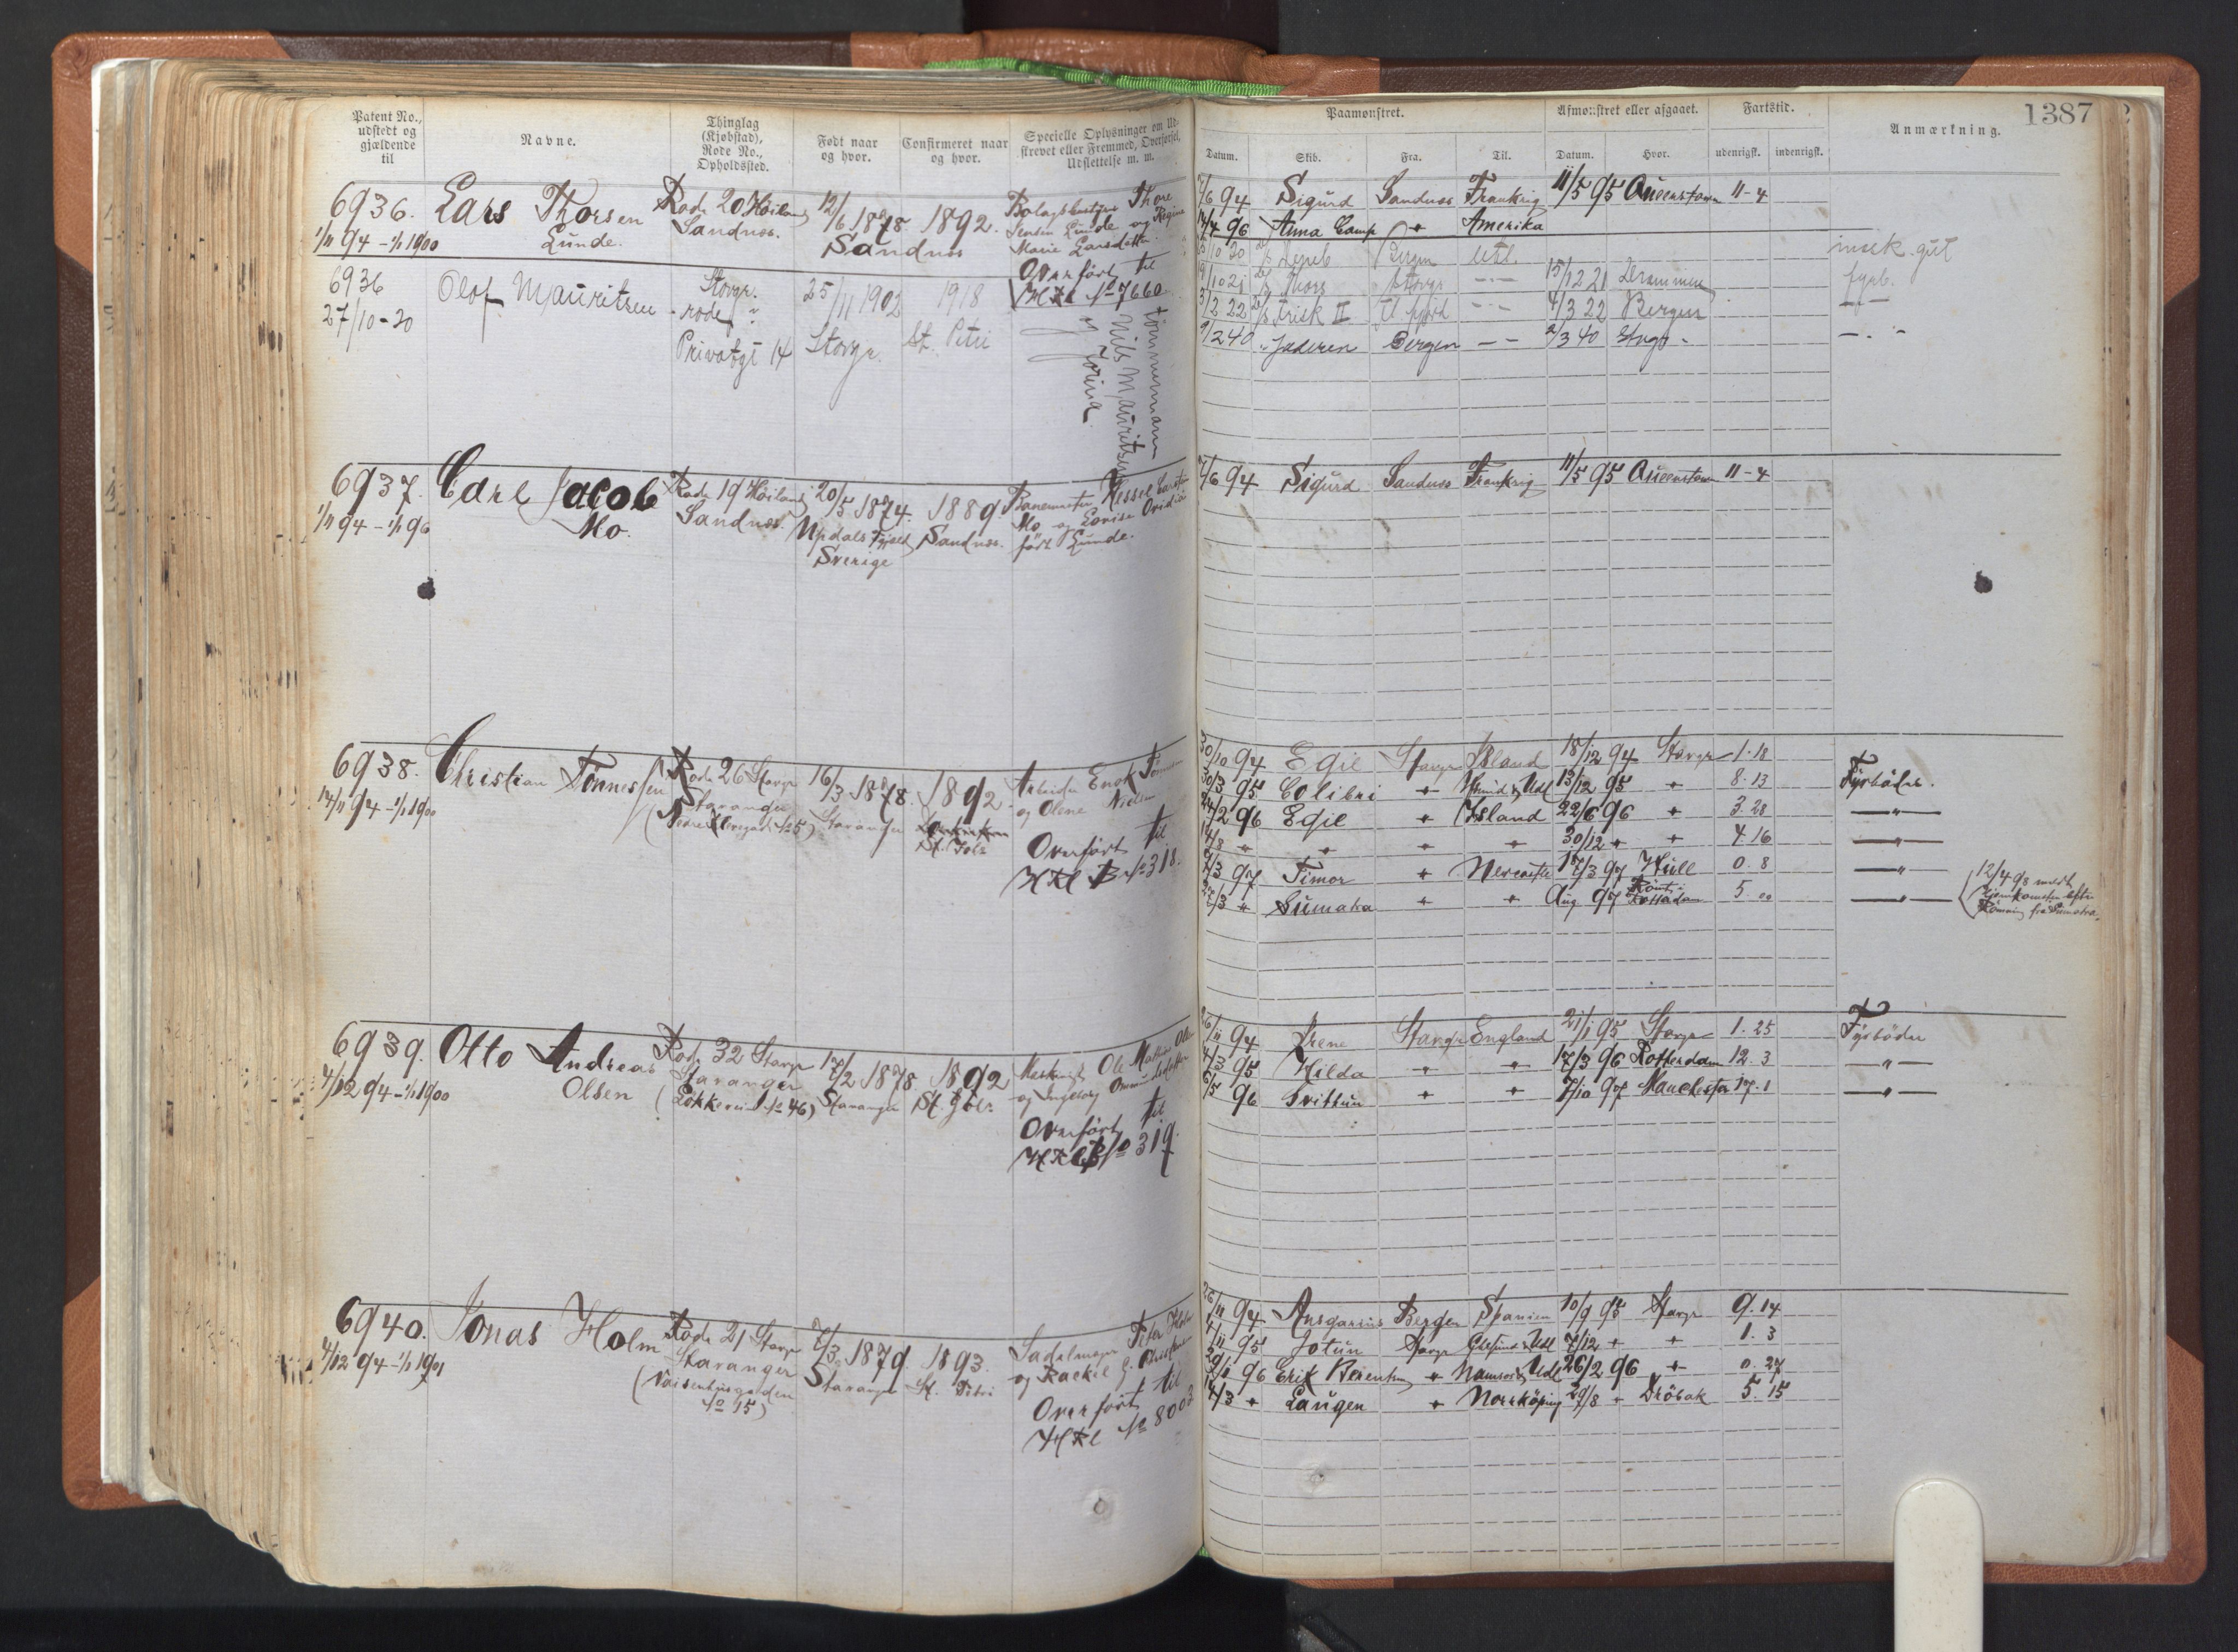 Patent No., udstedt og gjældende til
Navne.
Thinglag (Kjøbstad), Rode No., Opholdssted.
Født naar og hvor.
Confirmeret naar og hvor.
Specielle Oplysninger om Udskrevet eller Fremmed, Overførsel, Udslettelse m. m.
Paamønstret.
Afmønstret eller afgaaet.
Fartstid.
Anmærkning.
1387
Datum. Skib. Fra. Til. Datum. Hvor. udenrigsk. indenrigsk.
6936. Lars Thorsen Rode 20 Høiland 12/6 1878 1892. Thore
1/11 94 - 1/1 1900 Lunde. Sandnes. Sandnes Jensen Lunde og Regine
Marie Larsdatter
Overført til
HKl No 7660
6936 Olof Mauritsen Stavgr. 25/11 1902 1918
27/10-20 rode "
Privatgt 14 Stavgr. St. Petri
Tømmermann
Nils Mauritsen
og Jorina
7/6 94 Sigurd Sandnes Frankrig 11/5 95 Queenstown 11-4
14/4 96 Anna Camp " Amerika
Bergen Utl.
19/10 21 Thors Stavgr -"- 15/12 21 Drammen fyrb.
3/2 22 Frisk II -"- 4/3 22 Bergen -"-
9/2 40 Jæderen Bergen -"- 2/3 40 -"-
6937. Carl Jacob Rode 19 Høiland 20/5 1874. 1889. Banemester Hessel Carsten
1/11 94 - 1/1 96 Mo. Sandnes. Updals Fjeld Sandnes. Mo og Lovise Ovidia
Sverige født Lunde.
7/6 94 Sigurd Sandnes Frankrig 11/5 95 Queenstown 11-4
6938. Christian Tønnessen Rode 26 Stavgr 16/3 1878. 1892. Arbeider Enok Tønnessen
14/11 94 - 1/1 1900 Stavanger Stavanger og Olene Nielsen
St. Johs
Overført til
HKl B No 318.
30/10 94 Egil Stavgr Island 18/12 94 Stavgr 1.18
30/3 95 Colibri " Udl 13/12 95 " 8.13 Fyrbøder.
24/2 96 Egil " Island 22/6 96 " 3.28 -"-
14/8 " " " " 30/12 " " 4.16 -"-
9/3 97 Timor " Newcastle 17/3 97 Hull 0.8 -"-
27/3 " Sumatra " " Aug 97 Rømt i Rotterdam 5.00 -"-
12/4 98 meldt
Hjemkomsten efter
Rømning fra Sumatra.
6939. Otto Andreas Rode 32 Stavgr 17/2 1878. 1892 Maskinist Ole Mathias Olsen
4/12 94 - 1/1 1900 Olsen Stavanger Stavanger St. Johs. og Ingeborg Ommundsdatter
(Løkkevei No 46)
Overført til
HKl B No 319.
26/11 94 Irene Stavgr England 21/1 95 Stavgr 1.25 Fyrbøder
4/3 95 Hilda " " 17/3 96 Rotterdam 12.3 -"-
6/5 96 Svithun " " 7/10 97 Manchester 17.1 -"-
6940. Jonas Holm Rode 21 Stavgr 7/3 1879. 1893. Sadelmager Peter Holm
4/12 94 - 1/1 1901 Stavanger Stavanger St. Petri og Rackel
(Vaisenhusgaden
No 15)
Overført til
HKl No 8003
26/11 94 Ansgarius Bergen Spanien 10/9 95 Stavgr 9.14
4/11 95 Jotun Stavgr Udl 7/12 " " 1.3
29/1 96 Erik Berentsen " Namsos & Udl 26/2 96 " 0.27
14/3 " Laugen " Norrköping 29/8 " Drøbak 5.15